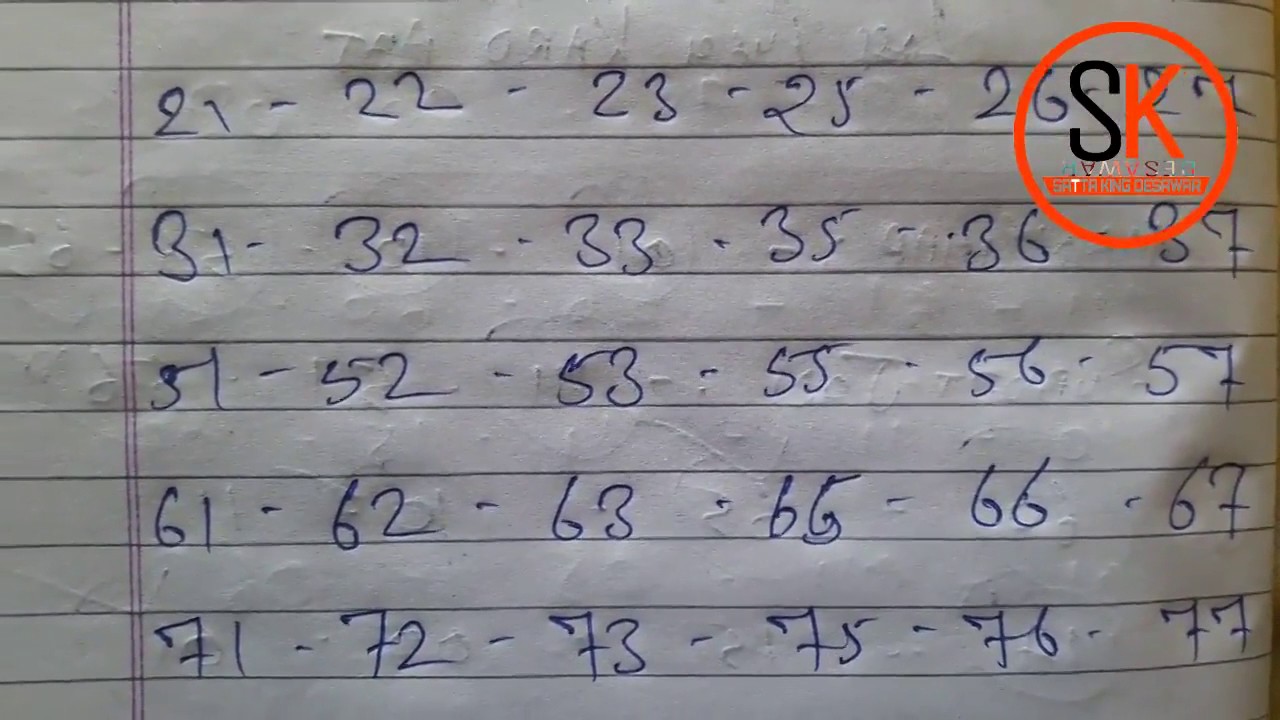 21 - 22 - 23 - 25 - 26 - 27
SK
DESAWAR
SATTA KING DESAWAR
31 - 32 - 33 - 35 - 36 - 37
51 - 52 - 53 - 55 - 56 - 57
61 - 62 - 63 - 65 - 66 - 67
71 - 72 - 73 - 75 - 76 - 77